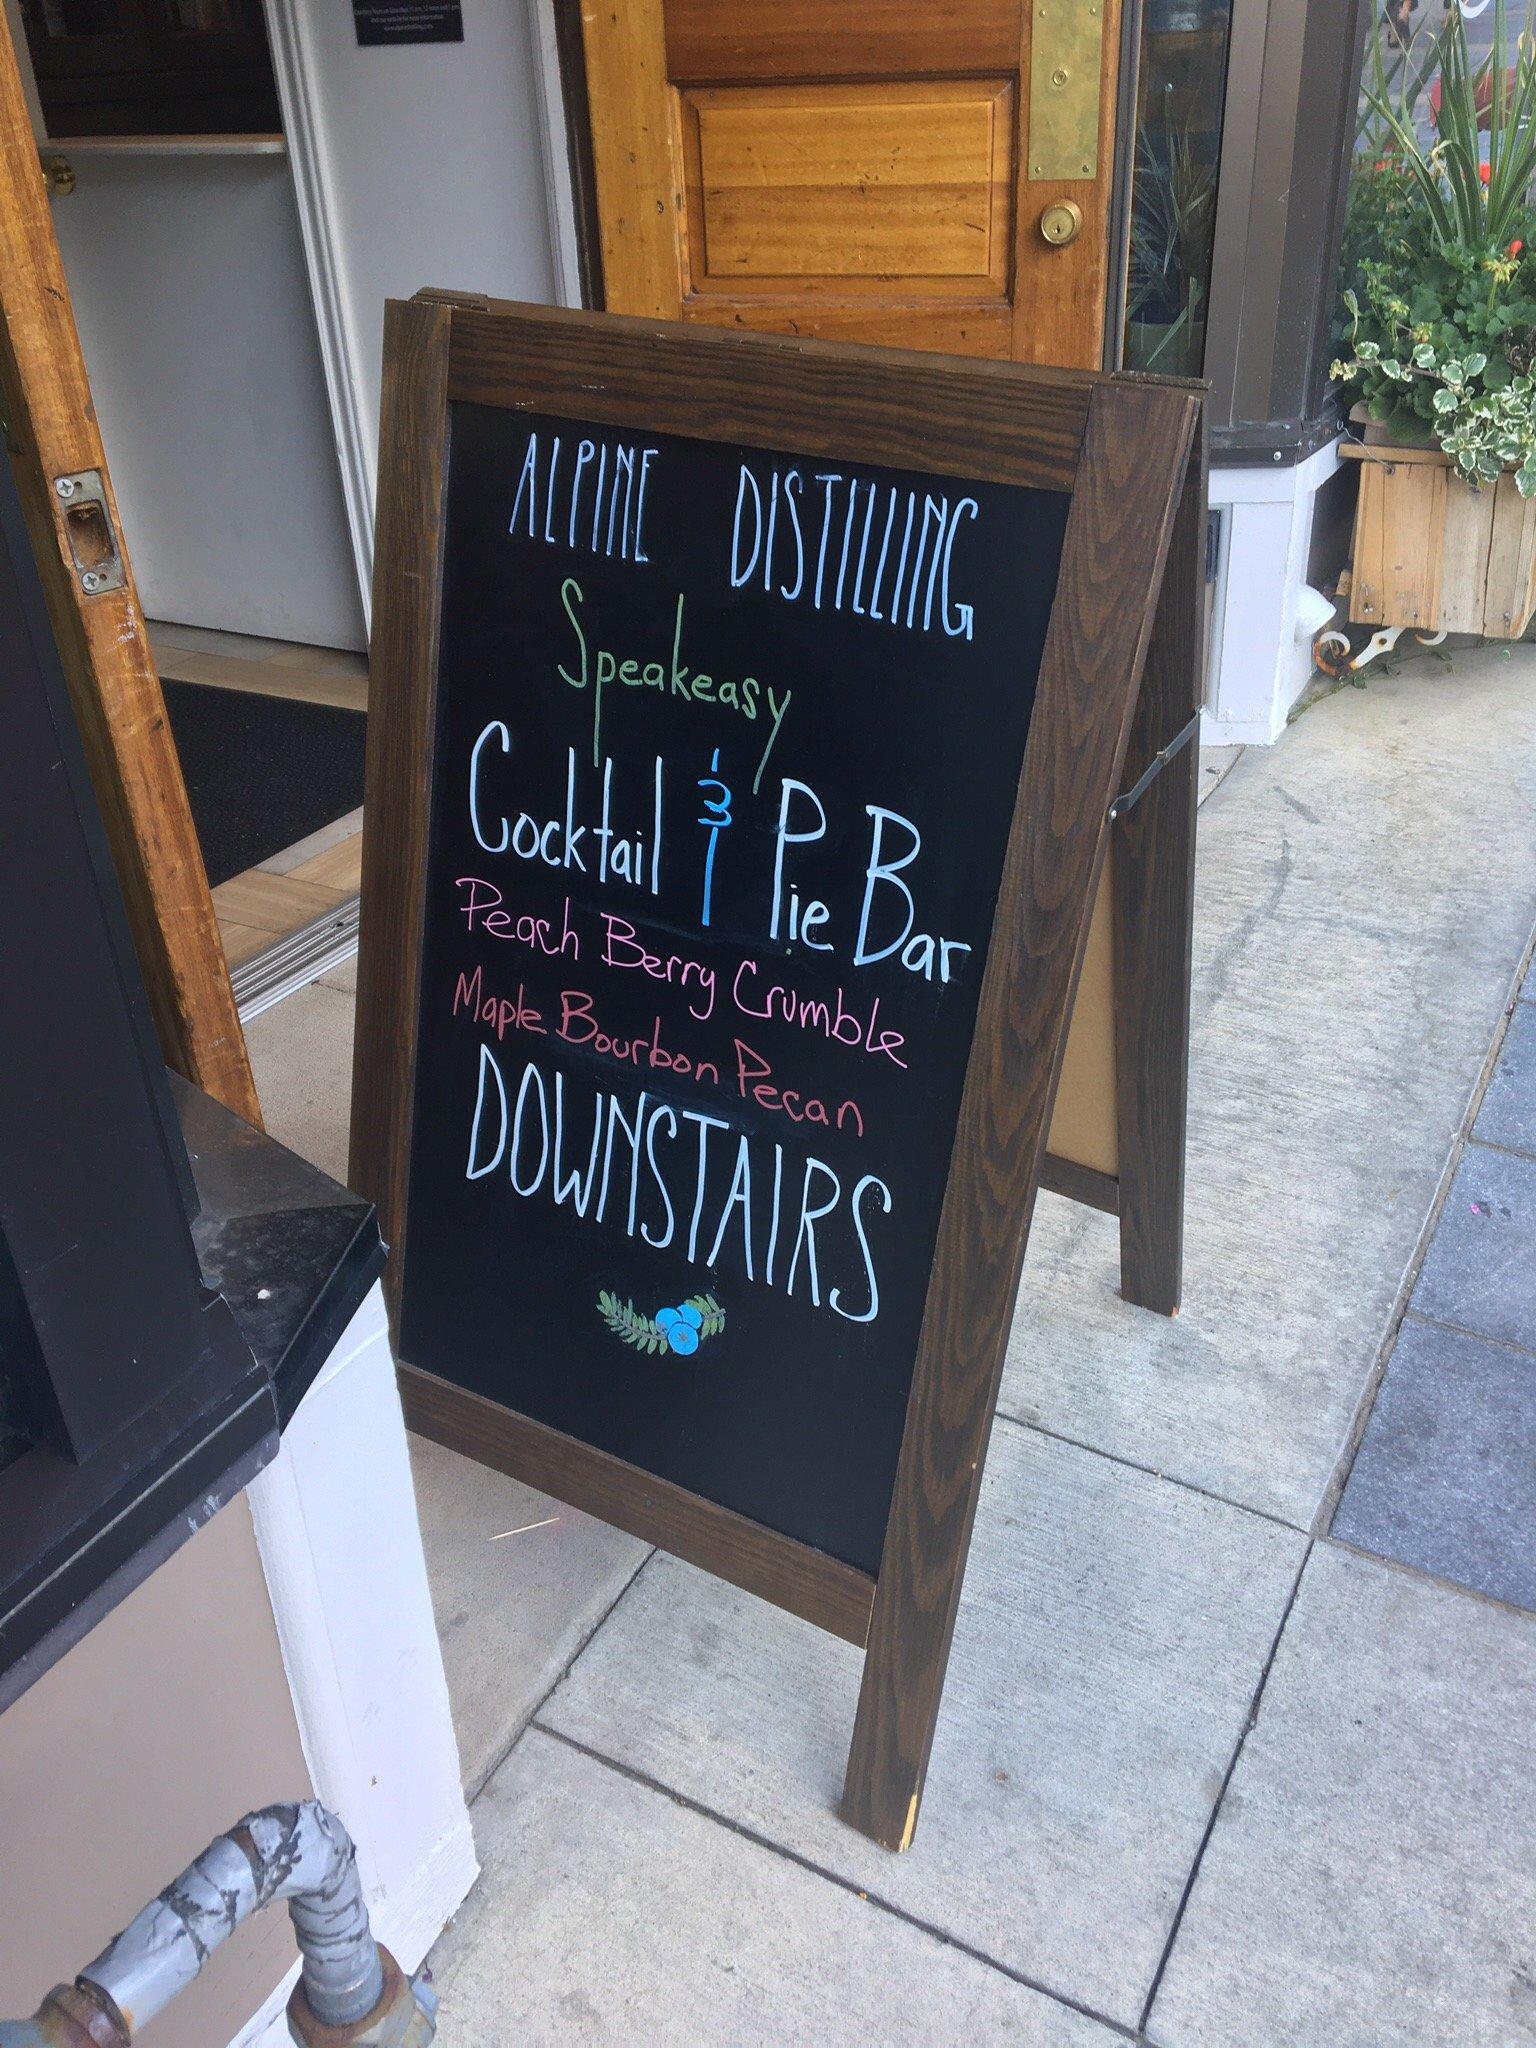 ALPINE DISTILLING
Speakeasy
Cocktail & Pie Bar
Peach Berry Crumble
Maple Bourbon Pecan
DOWNSTAIRS